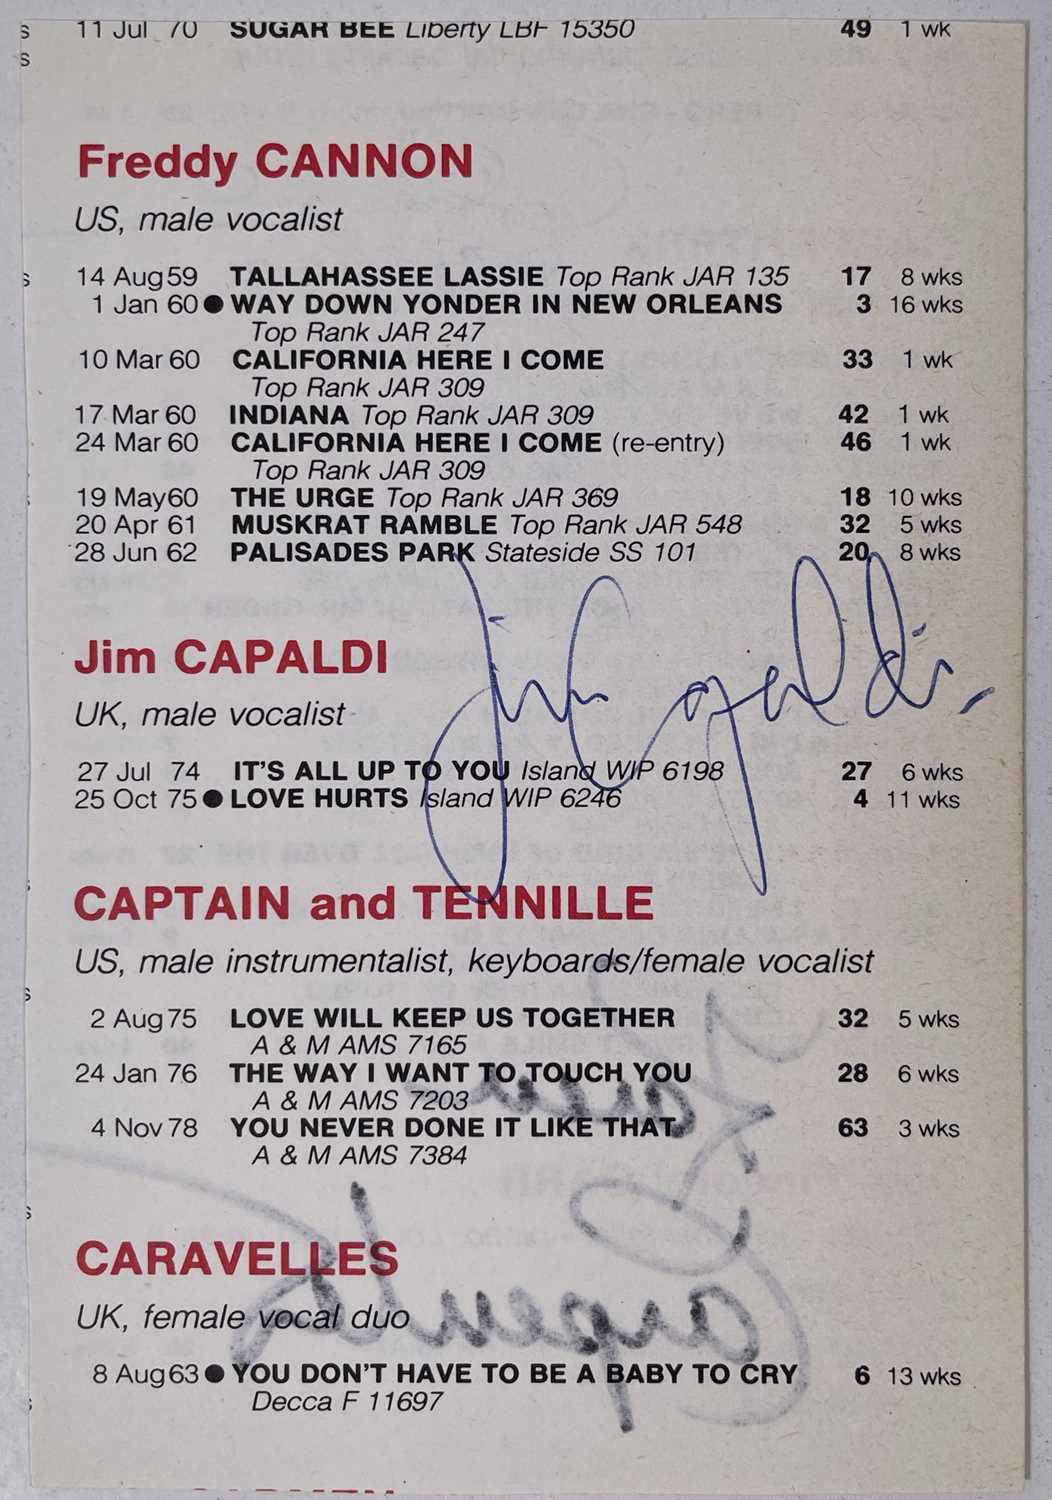 11 Jul 70 SUGAR BEE Liberty LBF 15350 49 1 wk
Freddy CANNON
US, male vocalist
14 Aug 59 TALLAHASSEE LASSIE Top Rank JAR 135 17 8 wks
1 Jan 60 ● WAY DOWN YONDER IN NEW ORLEANS 3 16 wks
Top Rank JAR 247
10 Mar 60 CALIFORNIA HERE I COME 33 1 wk
Top Rank JAR 309
17 Mar 60 INDIANA Top Rank JAR 309 42 1 wk
24 Mar 60 CALIFORNIA HERE I COME (re-entry) 46 1 wk
Top Rank JAR 309
19 May 60 THE URGE Top Rank JAR 369 18 10 wks
20 Apr 61 MUSKRAT RAMBLE Top Rank JAR 548 32 5 wks
28 Jun 62 PALISADES PARK Stateside SS 101 20 8 wks
Jim Capaldi
Jim CAPALDI
UK, male vocalist
27 Jul 74 IT'S ALL UP TO YOU Island WIP 6198 27 6 wks
25 Oct 75 ● LOVE HURTS Island WIP 6246 4 11 wks
CAPTAIN and TENNILLE
US, male instrumentalist, keyboards/female vocalist
2 Aug 75 LOVE WILL KEEP US TOGETHER 32 5 wks
A & M AMS 7165
24 Jan 76 THE WAY I WANT TO TOUCH YOU 28 6 wks
A & M AMS 7203
4 Nov 78 YOU NEVER DONE IT LIKE THAT 63 3 wks
A & M AMS 7384
CARAVELLES
UK, female vocal duo
8 Aug 63 ● YOU DON'T HAVE TO BE A BABY TO CRY 6 13 wks
Decca F 11697